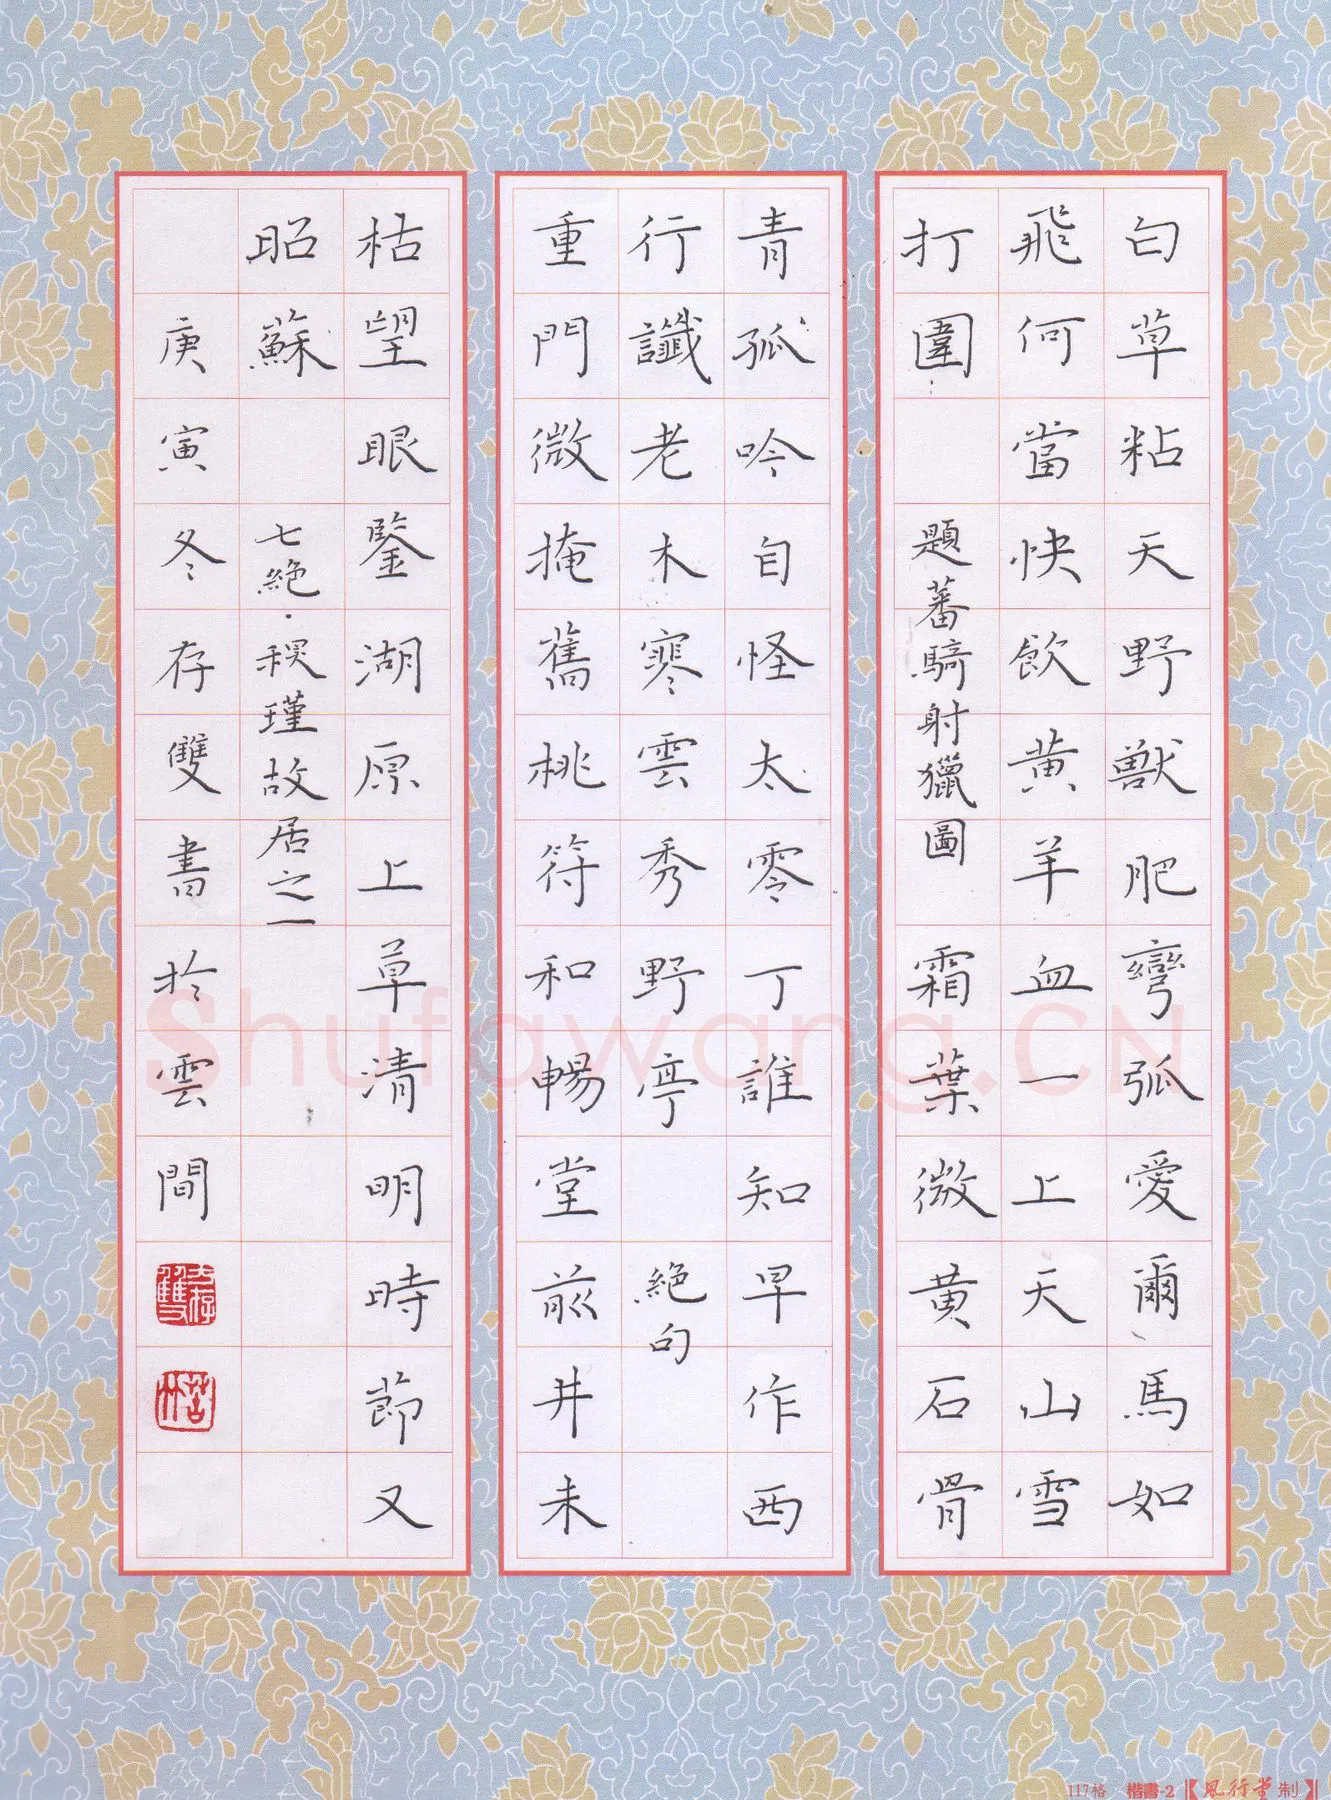 白草粘天野獸肥彎弧愛爾馬如
飛何當快飲黃羊血一上天山雪
打圍 題蕃騎射獵圖 霜葉微黃石骨
青孤吟自怪太零丁誰知早作西
行讖老木寒雲秀野亭 絕句
重門微掩舊桃符和暢堂前井未
枯望眼鑒湖原上草清明時節又
昭蘇 七絕·秋瑾故居之一
庚寅冬存雙書於雲間
Shufawang.CN
117格 楷書-2【風行堂制】